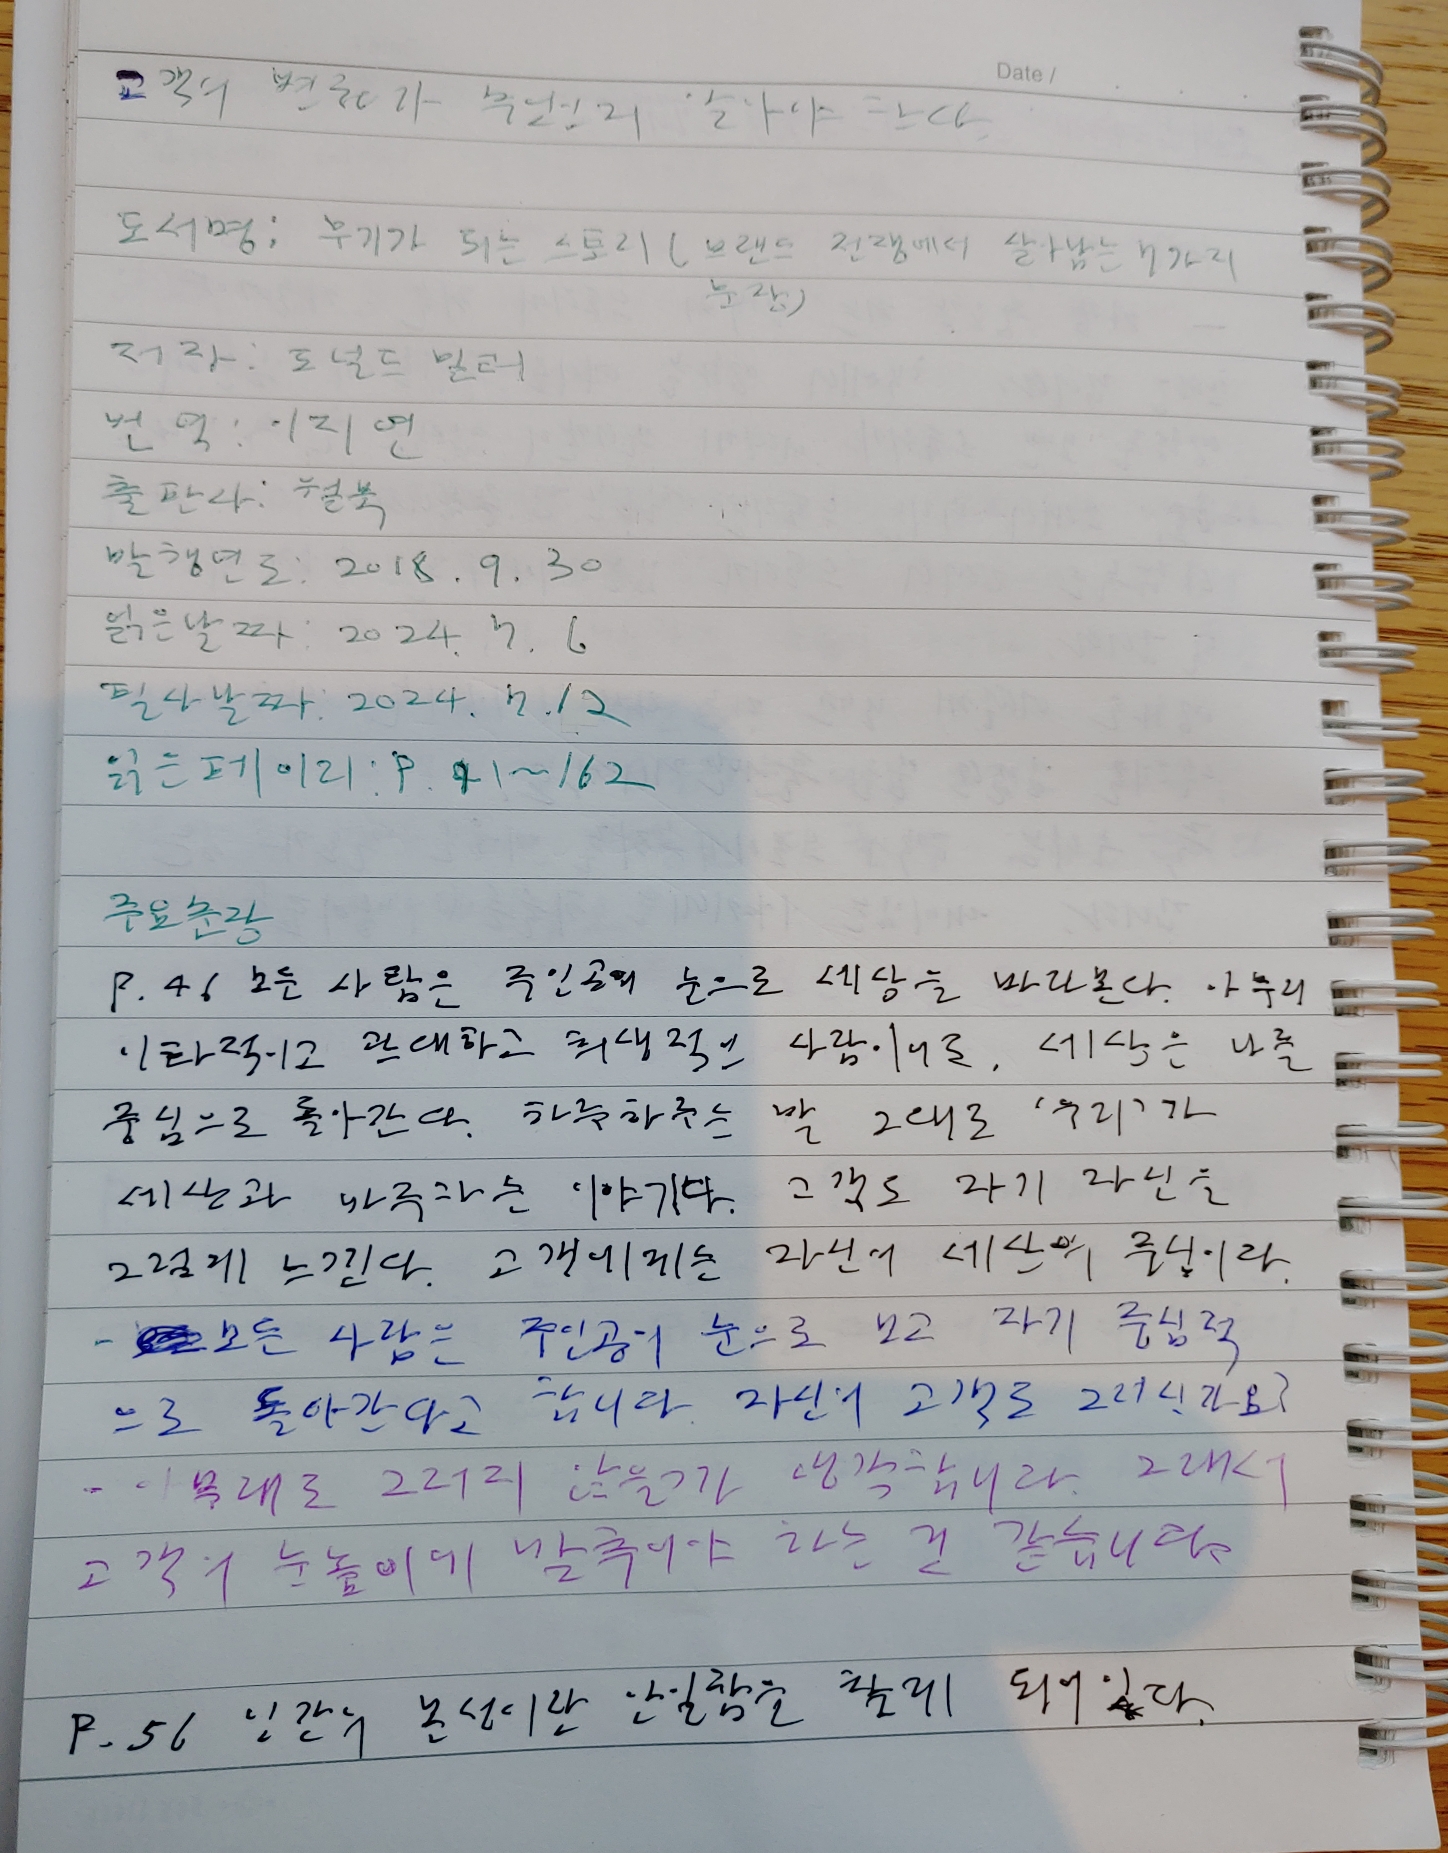 Date /
고객의 변화가 무엇인지 알아야 한다
도서명: 무기가 되는 스토리 (브랜드 전쟁에서 살아남는 7가지
문장)
저자: 도널드 밀러
번역: 이지연
출판사: 윌북
발행연도: 2018. 9. 30
읽은날짜: 2024. 7. 6
필사날짜: 2024. 7. 12
읽은페이지: P. 41~162
주요문장
P. 46 모든 사람은 주인공의 눈으로 세상을 바라본다. 아무리
이타적이고 관대하고 희생적인 사람이라도, 세상은 나를
중심으로 돌아간다. 하루하루는 말 그대로 '우리'가
세상과 마주하는 이야기다. 고객도 자기 자신을
그렇게 느낀다. 고객에게는 자신이 세상의 중심이다.
- 모든 사람은 주인공의 눈으로 보고 자기 중심적
으로 돌아간다고 합니다. 자신의 고객도 그러신가요?
- 아무래도 그러지 않을까 생각합니다. 그래서
고객의 눈높이에 맞추어야 하는 것 같습니다.
P. 56 인간의 본성이란 안일함을 찾게 되어있다.